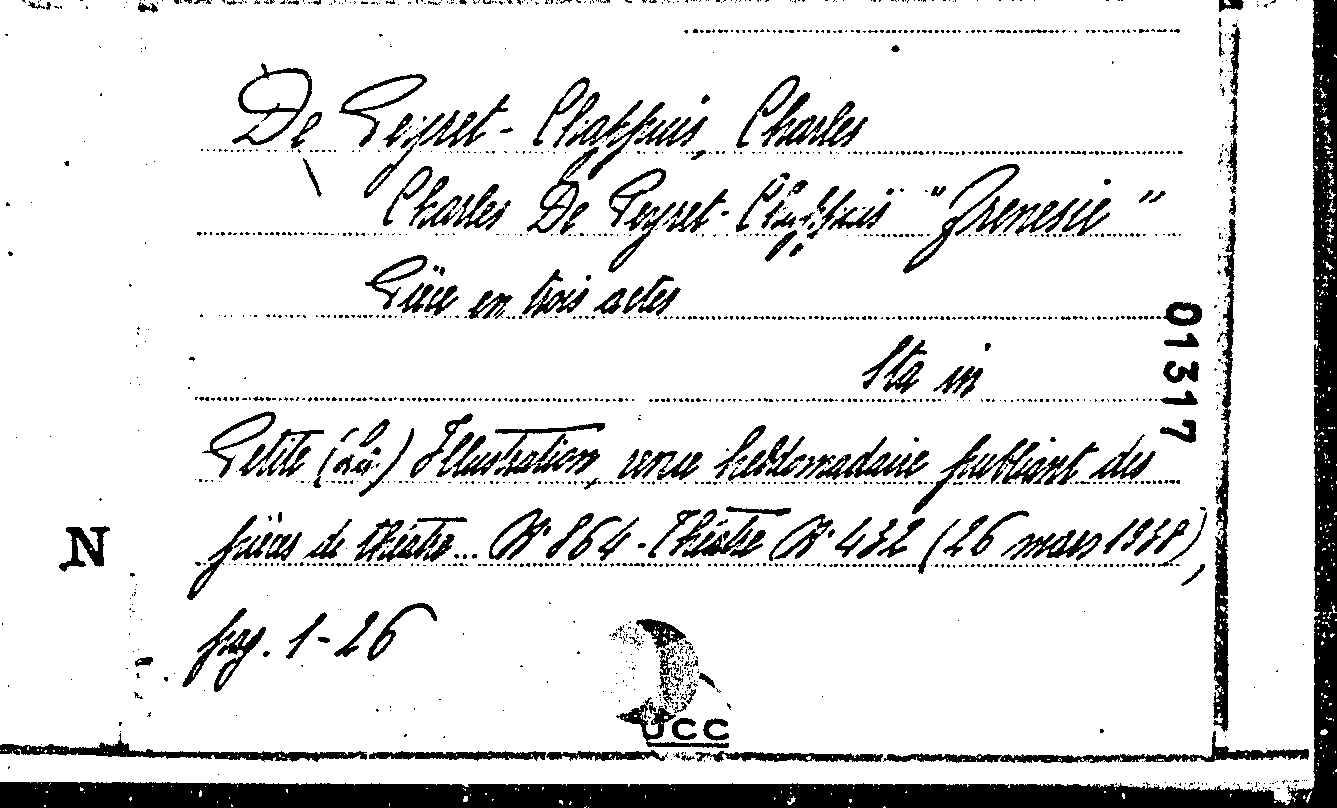 De Peyret-Chappuis, Charles
Charles De Peyret-Chappuis "Frenesie"
Pièce en trois actes
Sta in
01317
Petite (La) Illustration, revue hebdomadaire publiant des
N
pièces de théatre... N° 864 - Théatre N° 432 (26 mars 1938),
pag. 1-26
UCC